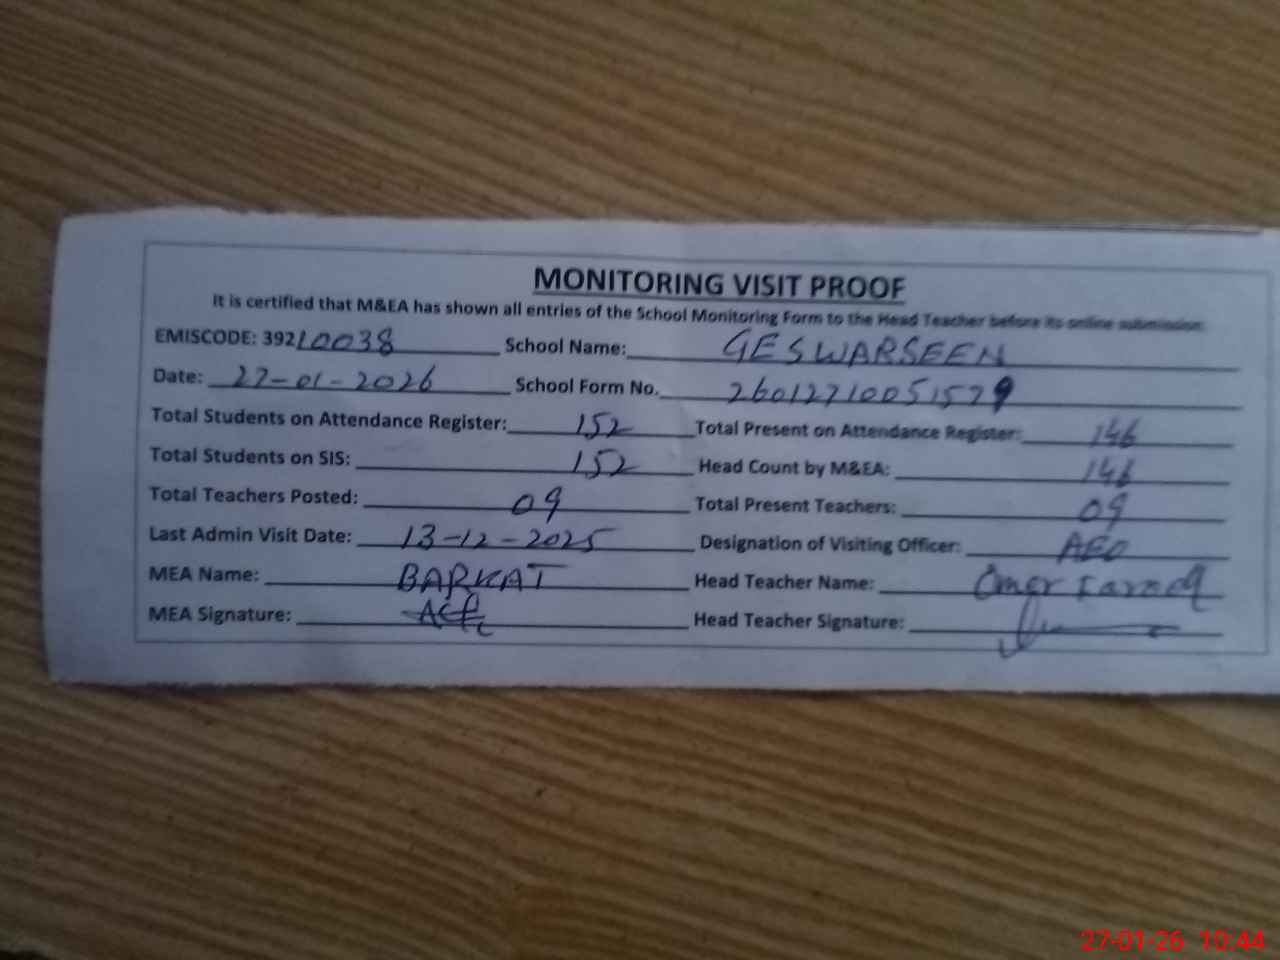 MONITORING VISIT PROOF
It is certified that M&EA has shown all entries of the School Monitoring Form to the Head Teacher before its online submission.
EMISCODE: 39210038 School Name: GES WARSEEN
Date: 27-01-2026 School Form No. 26012710051579
Total Students on Attendance Register: 152 Total Present on Attendance Register: 146
Total Students on SIS: 152 Head Count by M&EA: 146
Total Teachers Posted: 09 Total Present Teachers: 09
Last Admin Visit Date: 13-12-2025 Designation of Visiting Officer: AEO
MEA Name: BARKAT Head Teacher Name: Omer Farooq
MEA Signature: Head Teacher Signature:
27-01-26 10:44